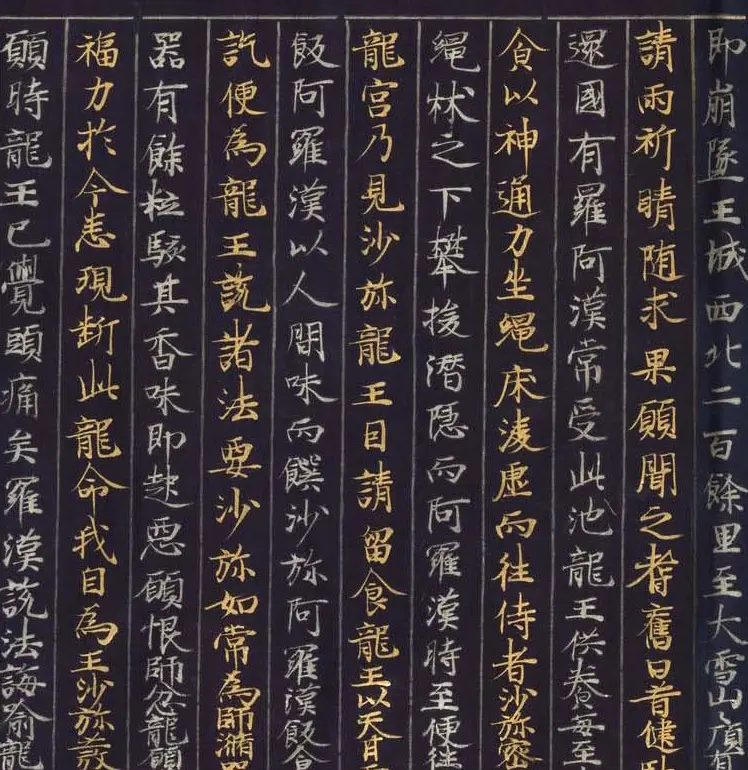 即崩墜王城西北二百餘里至大雪山〻頂有
請雨祈晴随求果願聞之耆舊曰昔健馱
邏國有羅阿漢常受此池龍王供養每至
食以神通力坐繩床淩虛而往侍者沙弥密
繩牀之下攀援潛隱而阿羅漢時至便往
龍宮乃見沙弥龍王因請留食龍王以天甘
飯阿羅漢以人間味而饌沙弥阿羅漢飯食
訖便為龍王說諸法要沙弥如常為師滌器
器有餘粒駭其香味即起惡願恨師忿龍願
福力於今悉現断此龍命我自為王沙弥發
願時龍王已覺頭痛矣羅漢說法誨喻龍